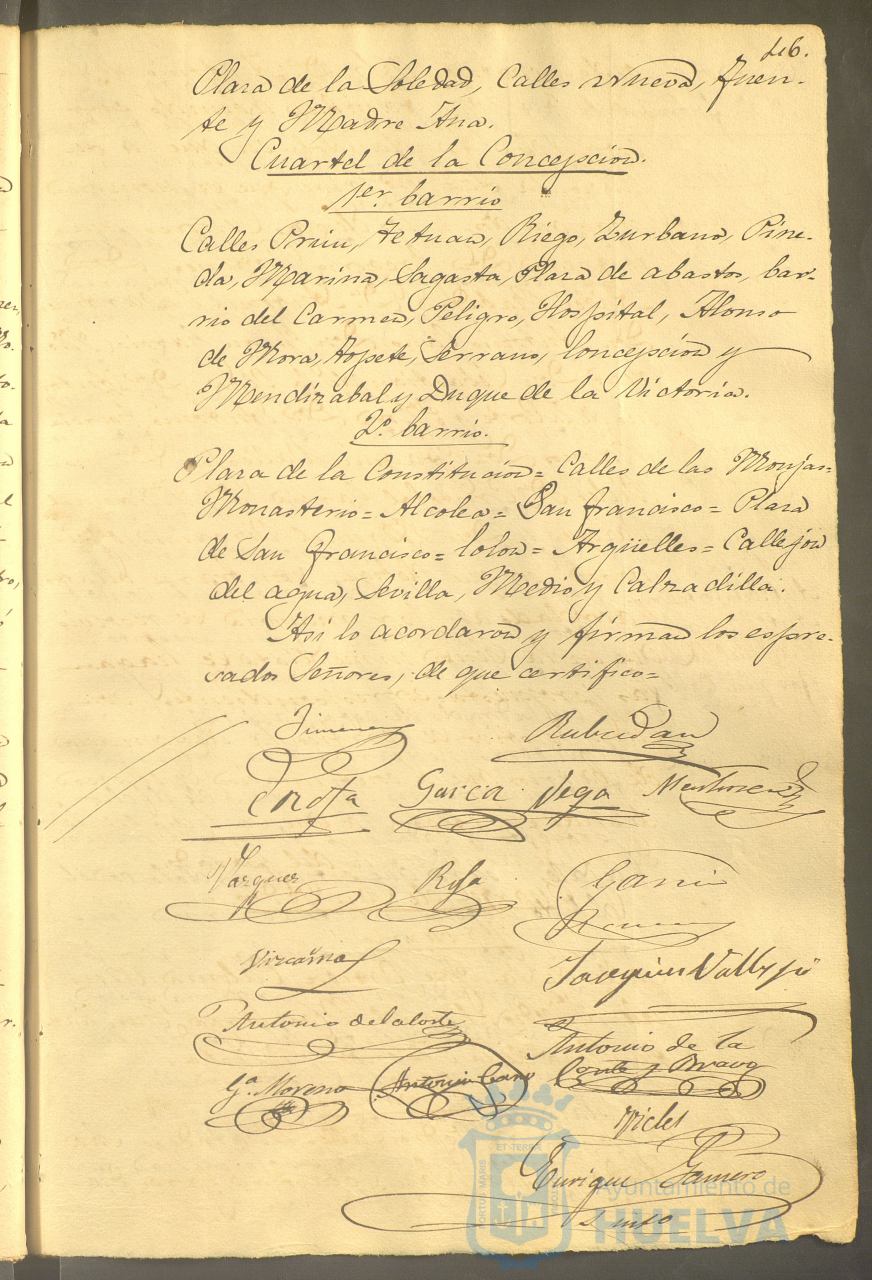 46.
Plaza de la Soledad, Calles Nueva, Fuen-
te y Madre Ana.
Cuartel de la Concepcion.
1er. barrio
Calles Prim, Tetuan, Riego, Zurbano, Pine-
da, Marina, Sagasta, Plaza de abastos, bar-
rio del Carmen, Peligro, Hospital, Alonso
de Mora, Topete, Serrano, Concepcion y
Mendizabal y Duque de la Victoria.
2o. barrio.
Plaza de la Constitucion = Calles de las Monjas =
Monasterio = Alcolea = San Francisco = Plaza
de San Francisco = Colon = Argüelles = Callejon
del agua, Sevilla, Medio y Calzadilla.
Asi lo acordaron y firman los espre-
sados Señores, de que certifico =
Jimenez
Garcia Vega
Vazquez
Garcia
Vizcaino
Joaquin Vallejo
Antonio de la Corte
Antonio de la
Corte y Bravo
Ga. Moreno Antonio Cano
Enrique Gamero
PORTUS MARIS ET TERRÆ CUSTODIA
Ayuntamiento de
HUELVA